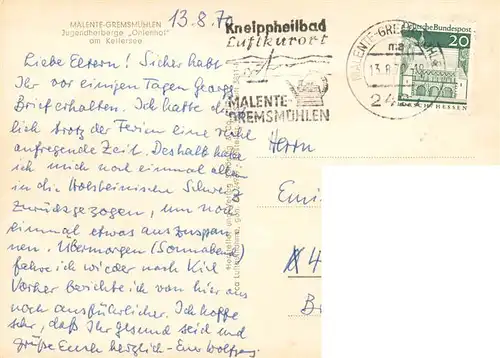 MALENTE-GREMSMÜHLEN
Jugendherberge „Orlenhof"
am Kellersee
13.8.70
Kneippheilbad
Luftkurort
MALENTE-
GREMSMÜHLEN
MALENTE-GREMSMÜHLEN
ma
13.8.70
242
Deutsche Bundespost
20
LORSCH/HESSEN
Liebe Eltern! Sicher habt
Ihr vor einigen Tagen Georgs
Brief erhalten. Ich hatte
lich trotz der Ferien eine recht
aufregende Zeit. Deshalb habe
ich mich noch einmal allein
in die Holsteinische Schweiz
zurückgezogen, um noch
einmal etwas auszuspan-
nen. Übermorgen (Sonnabend)
fahre ich wieder nach Kiel.
Vorher berichte ich von hier aus
noch ausführlicher. Ich hoffe
sehr, daß Ihr gesund seid und
grüße Euch herzlich - Euer Wolfgang
Herrn
Emi
4
B